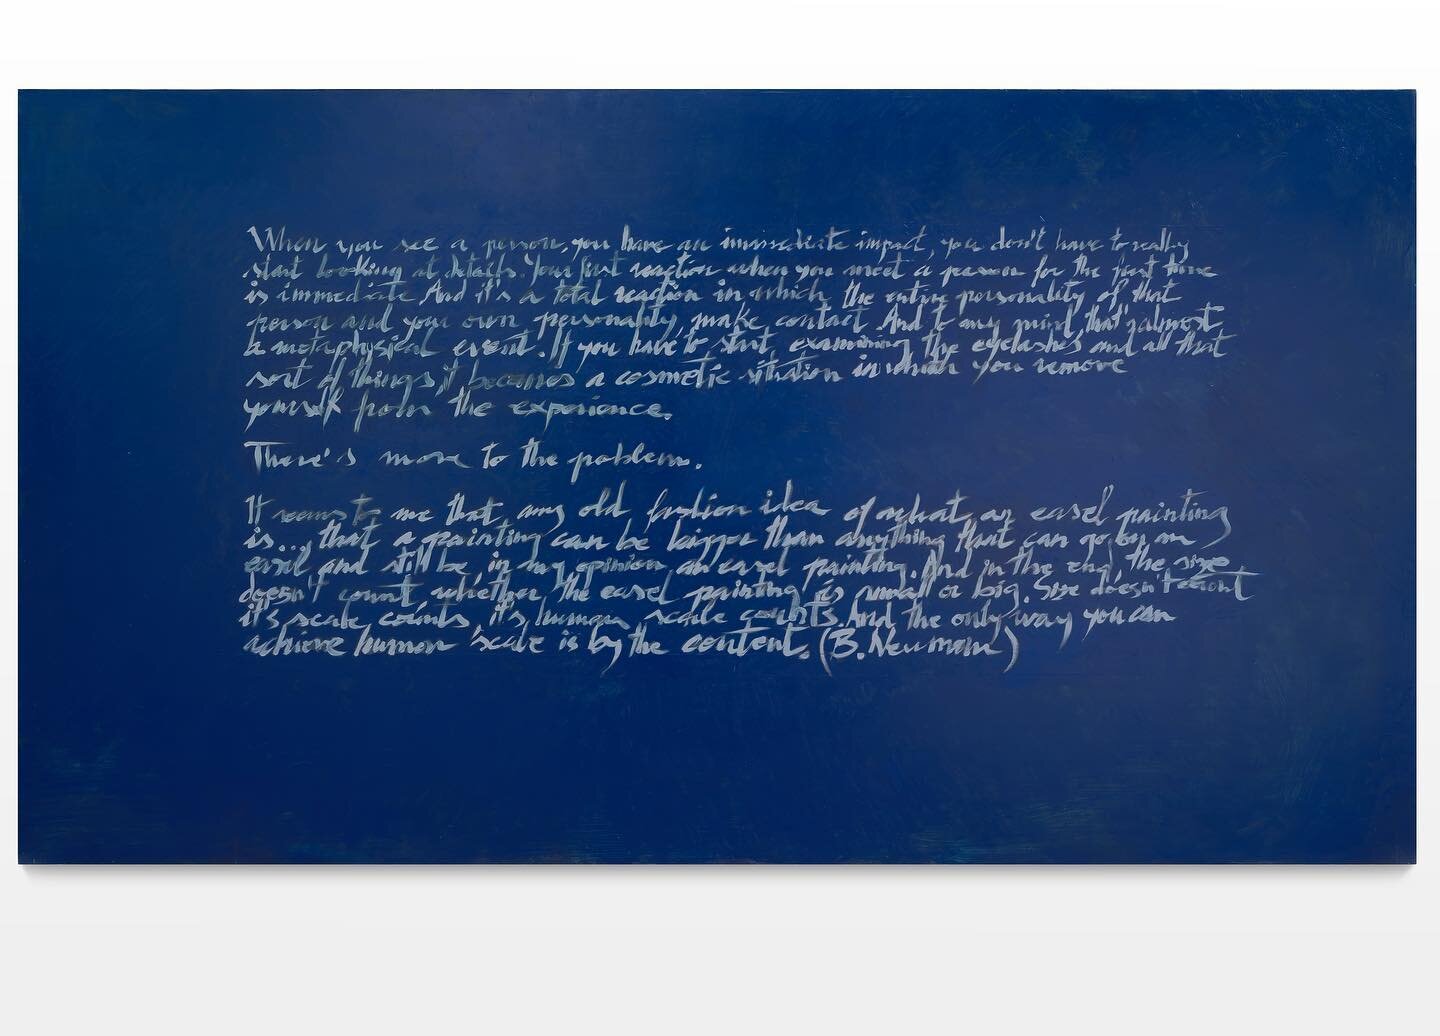 When you see a person, you have an immediate impact, you don't have to really
start looking at details. Your first reaction when you meet a person for the first time
is immediate. And it's a total reaction in which the entire personality of that
person and your own personality make contact. And to my mind, that's almost
a metaphysical event. If you have to start examining the eyelashes and all that
sort of things, it becomes a cosmetic situation in which you remove
yourself from the experience.
There's more to the problem.
It seems to me that any old fashion idea of what an easel painting
is... that a painting can be bigger than anything that can go on an
easel and still be in my opinion, an easel painting. And in the end, the size
doesn't count whether the easel painting is small or big. Size doesn't count
it's scale counts, it's human scale counts. And the only way you can
achieve human scale is by the content. (B. Newman)